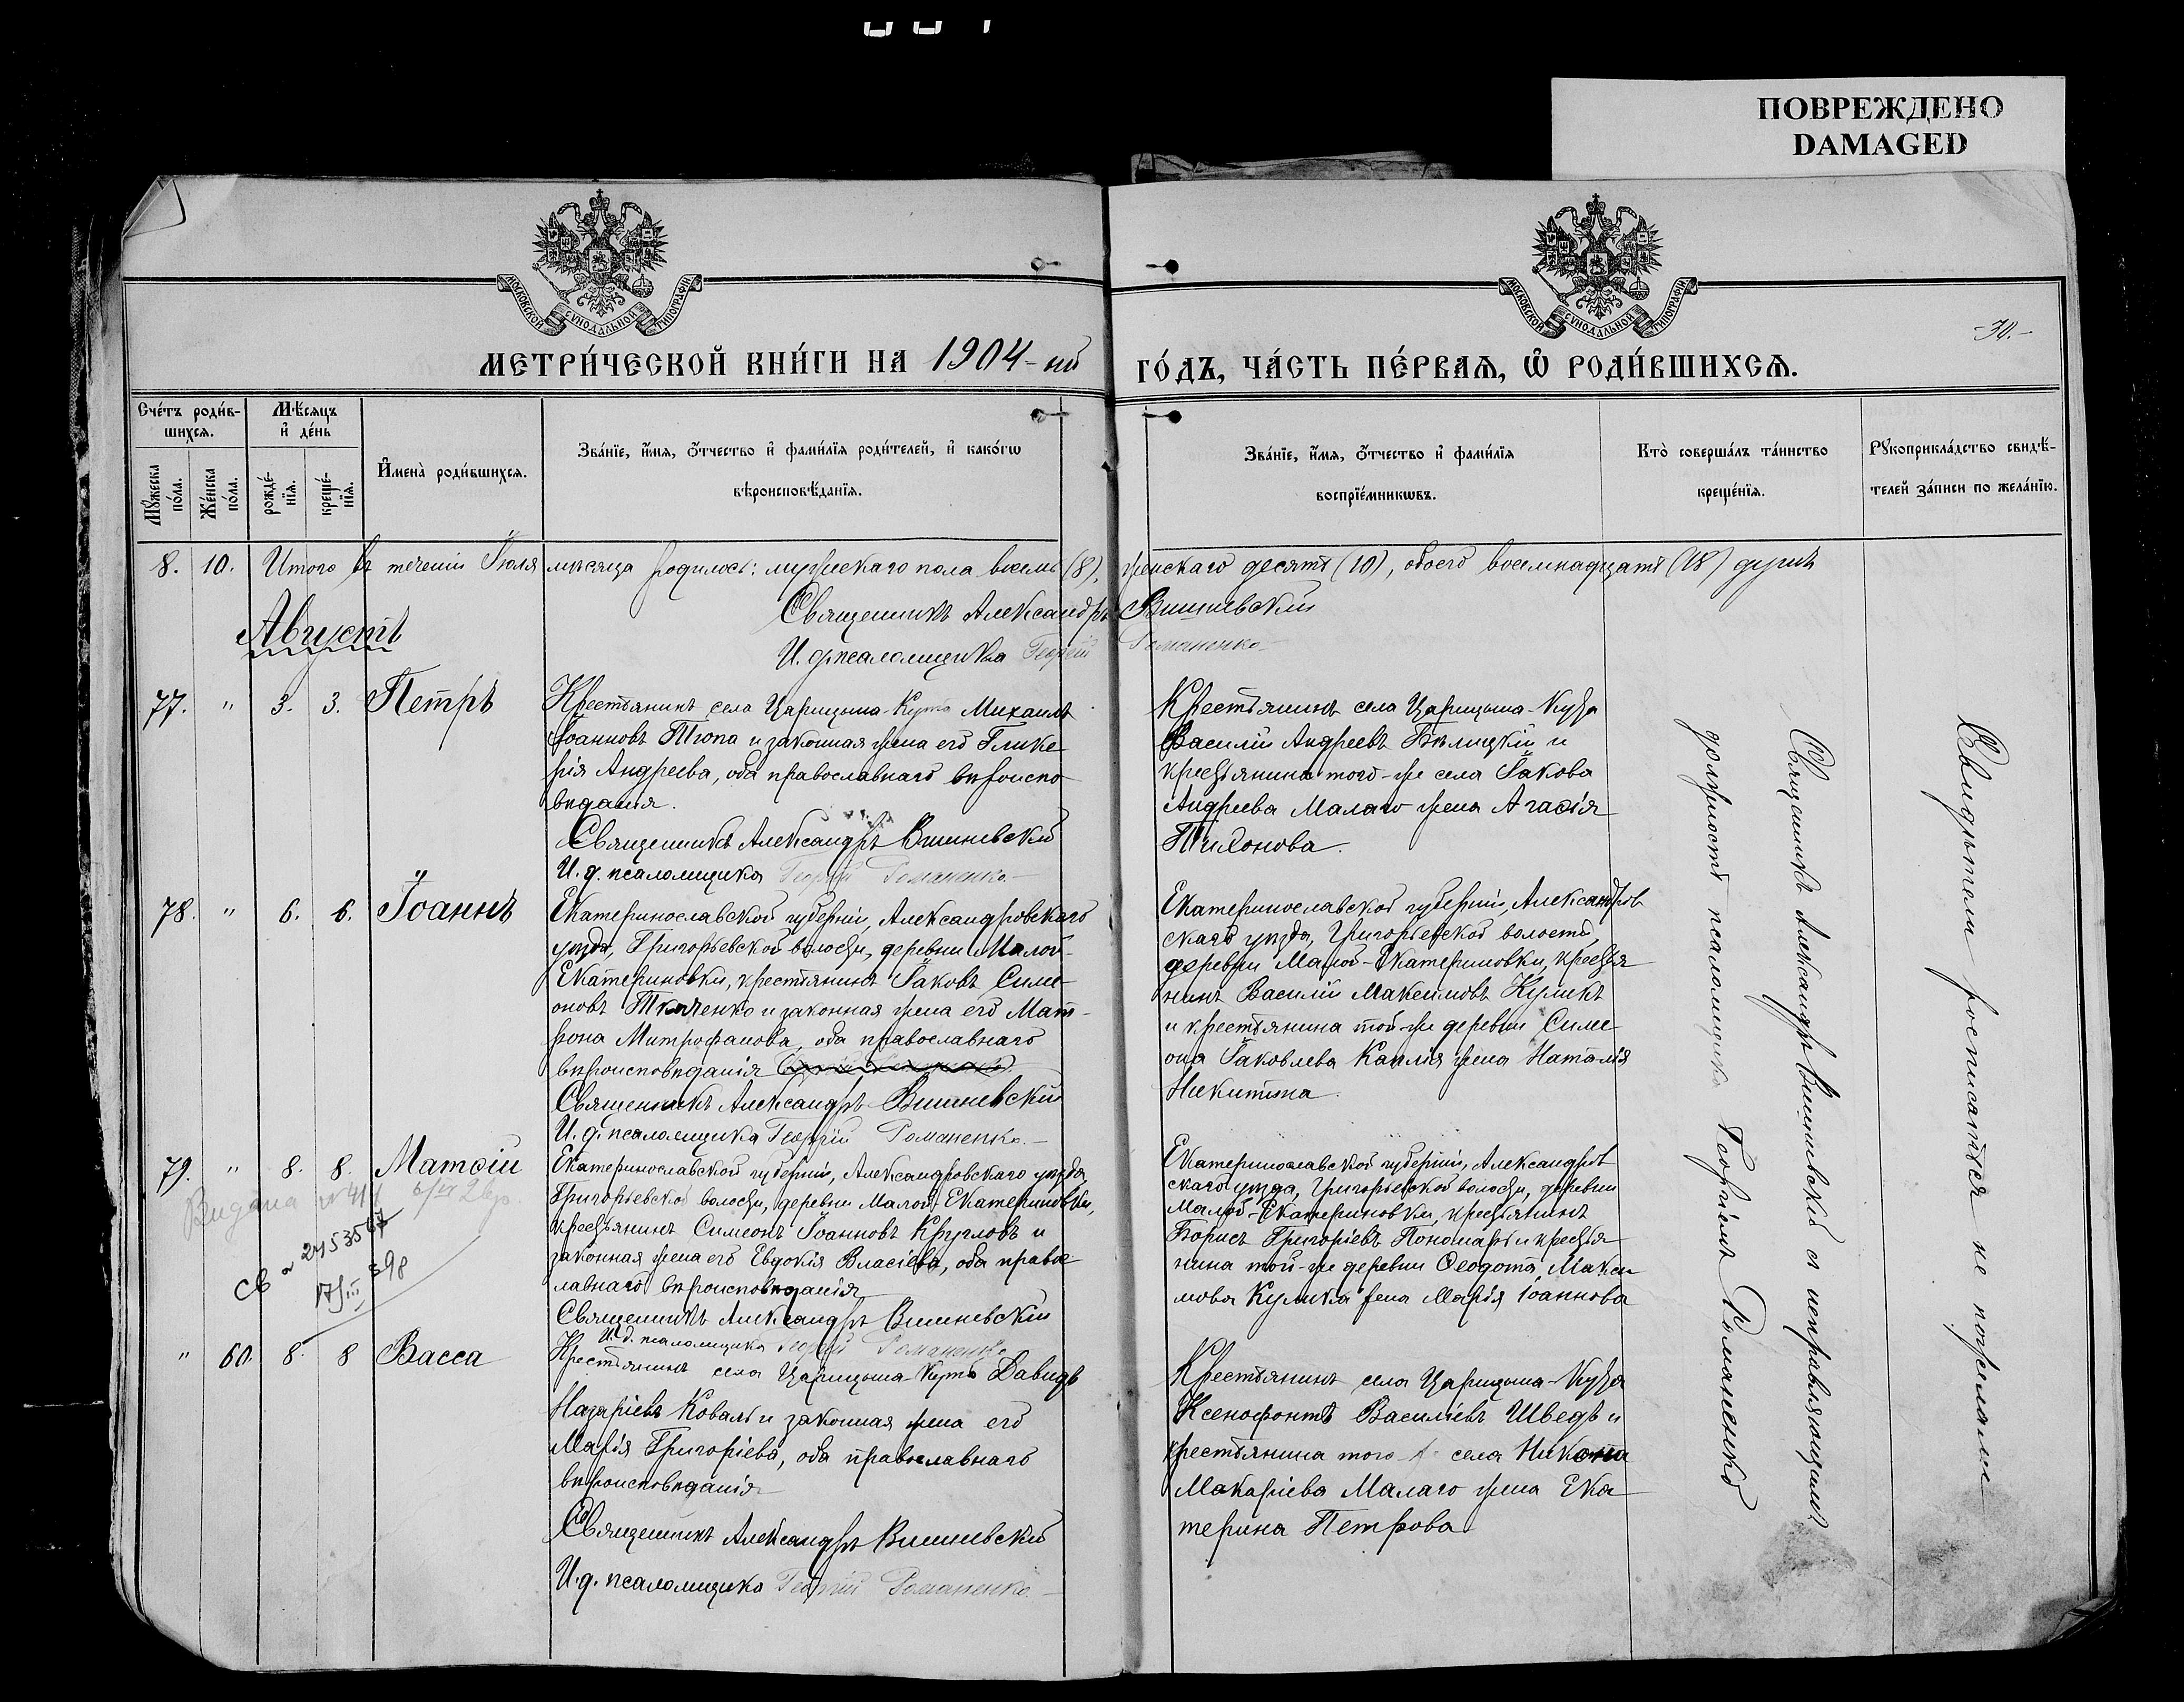 ПОВРЕЖДЕНО
DAMAGED
МОСКОВСКОЙ СѴНОДАЛЬНОЙ ТИПОГРАФІИ
МОСКОВСКОЙ СѴНОДАЛЬНОЙ ТИПОГРАФІИ
-30.-
МЕТРИ́ЧЕСКОЙ КНИ́ГИ НА 1904-ий
ГО́ДЪ, ЧА́СТЬ ПЕ́РВАЯ, Ѽ РОДИ́ВШИХСЯ.
Сче́тъ роди́в-
шихся.
Мꙋ́жеска по́ла.
Же́нска по́ла.
Мѣ́сяцъ
и҆ де́нь
рожде́-
нїя.
креще́-
нїя.
И҆мена̀ роди́вшихся.
Зва́нїе, и҆́мя, ѻ҆́тчество и҆ фами́лїя роди́телей, и҆ како́гѡ
вѣроисповѣ́данїя.
Зва́нїе, и҆́мя, ѻ҆́тчество и҆ фами́лїя
воспрїе́мникѡвъ.
Кто̀ соверша́лъ та́инство
креще́нїя.
Рꙋкоприкла́дство свидѣ́-
телей за́писи по жела́нїю.
8. 10. Итого въ теченіи Іюля мѣсяца родилось: мужескаго пола восемь (8), женскаго десять (10), обоего восемнадцать (18) душъ
Священникъ Александръ Вишневскій
И. д. псаломщика Георгій Романенко
Августъ
77. " 3. 3. Петръ
Крестьянинъ села Царицына-Кута Михаилъ
Іоанновъ Тюпа и законная жена его Глике-
рія Андреева, оба православнаго вѣроиспо-
вѣданія.
Священникъ Александръ Вишневскій
И. д. псаломщика Георгій Романенко.
Крестьянинъ села Царицына-Кута
Василій Андреевъ Бѣлицкій и
крестьянина того-же села Іакова
Андреева Малаго жена Агаѳія
Тихонова.
78. " 6. 6. Іоаннъ
Екатеринославской губерніи, Александровскаго
уѣзда, Григорьевской волости, деревни Малой-
Екатериновки, крестьянинъ Іаковъ Симе-
оновъ Ткаченко и законная жена его Мат-
рона Митрофанова, оба православнаго
вѣроисповѣданія
Священникъ Александръ Вишневскій
И. д. псаломщика Георгій Романенко.
Екатеринославской губерніи, Александров
скаго уѣзда, Григорьевской волости,
деревни Малой-Екатериновки, крестья
нинъ Василій Максимовъ Куликъ
и крестьянина той-же деревни Симе-
она Іаковлева Капля жена Наталія
Никитина.
79. " 8. 8. Матѳій
Видана
Св 2453567
398
Екатеринославской губерніи, Александровскаго уѣзда,
Григорьевской волости, деревни Малой-Екатериновки,
крестьянинъ Симеонъ Іоанновъ Кругловъ и
законная жена его Евдокія Власіева, оба право-
славнаго вѣроисповѣданія
Священникъ Александръ Вишневскій
И. д. псаломщика Георгій Романенко
Екатеринославской губерніи, Александров
скаго уѣзда, Григорьевской волости, деревни
Малой-Екатериновки, крестьянинъ
Борисъ Григоріевъ Пономарь и крестья
нина той-же деревни Ѳеодота Макси
мова Кулика жена Марія Іоаннова
" 60. 8. 8 Васса
Крестьянинъ села Царицына-Кута Давидъ
Назаріевъ Коваль и законная жена его
Марія Григоріева, оба православнаго
вѣроисповѣданія
Священникъ Александръ Вишневскій
И. д. псаломщика Георгій Романенко.
Крестьянинъ села Царицына-Кута
Ксенофонтъ Василіевъ Шведъ и
крестьянина того села Никона
Макаріева Малаго жена Ека-
терина Петрова
Священникъ Александръ Вишневскій съ исправляющимъ
должность псаломщика Георгіемъ Романенко
Свидѣтели росписаться не пожелали